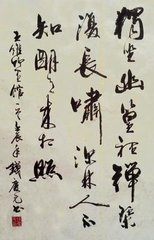 獨坐幽篁裡彈琴
復長嘯深林人不
知明月来相照
王維竹里館 壬辰年